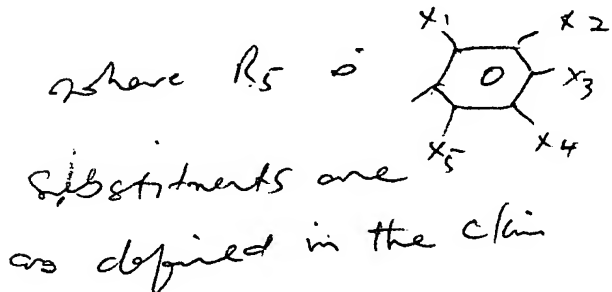 X1 X2
where R5 is X3
X5 X4
substituents are
as defined in the claim